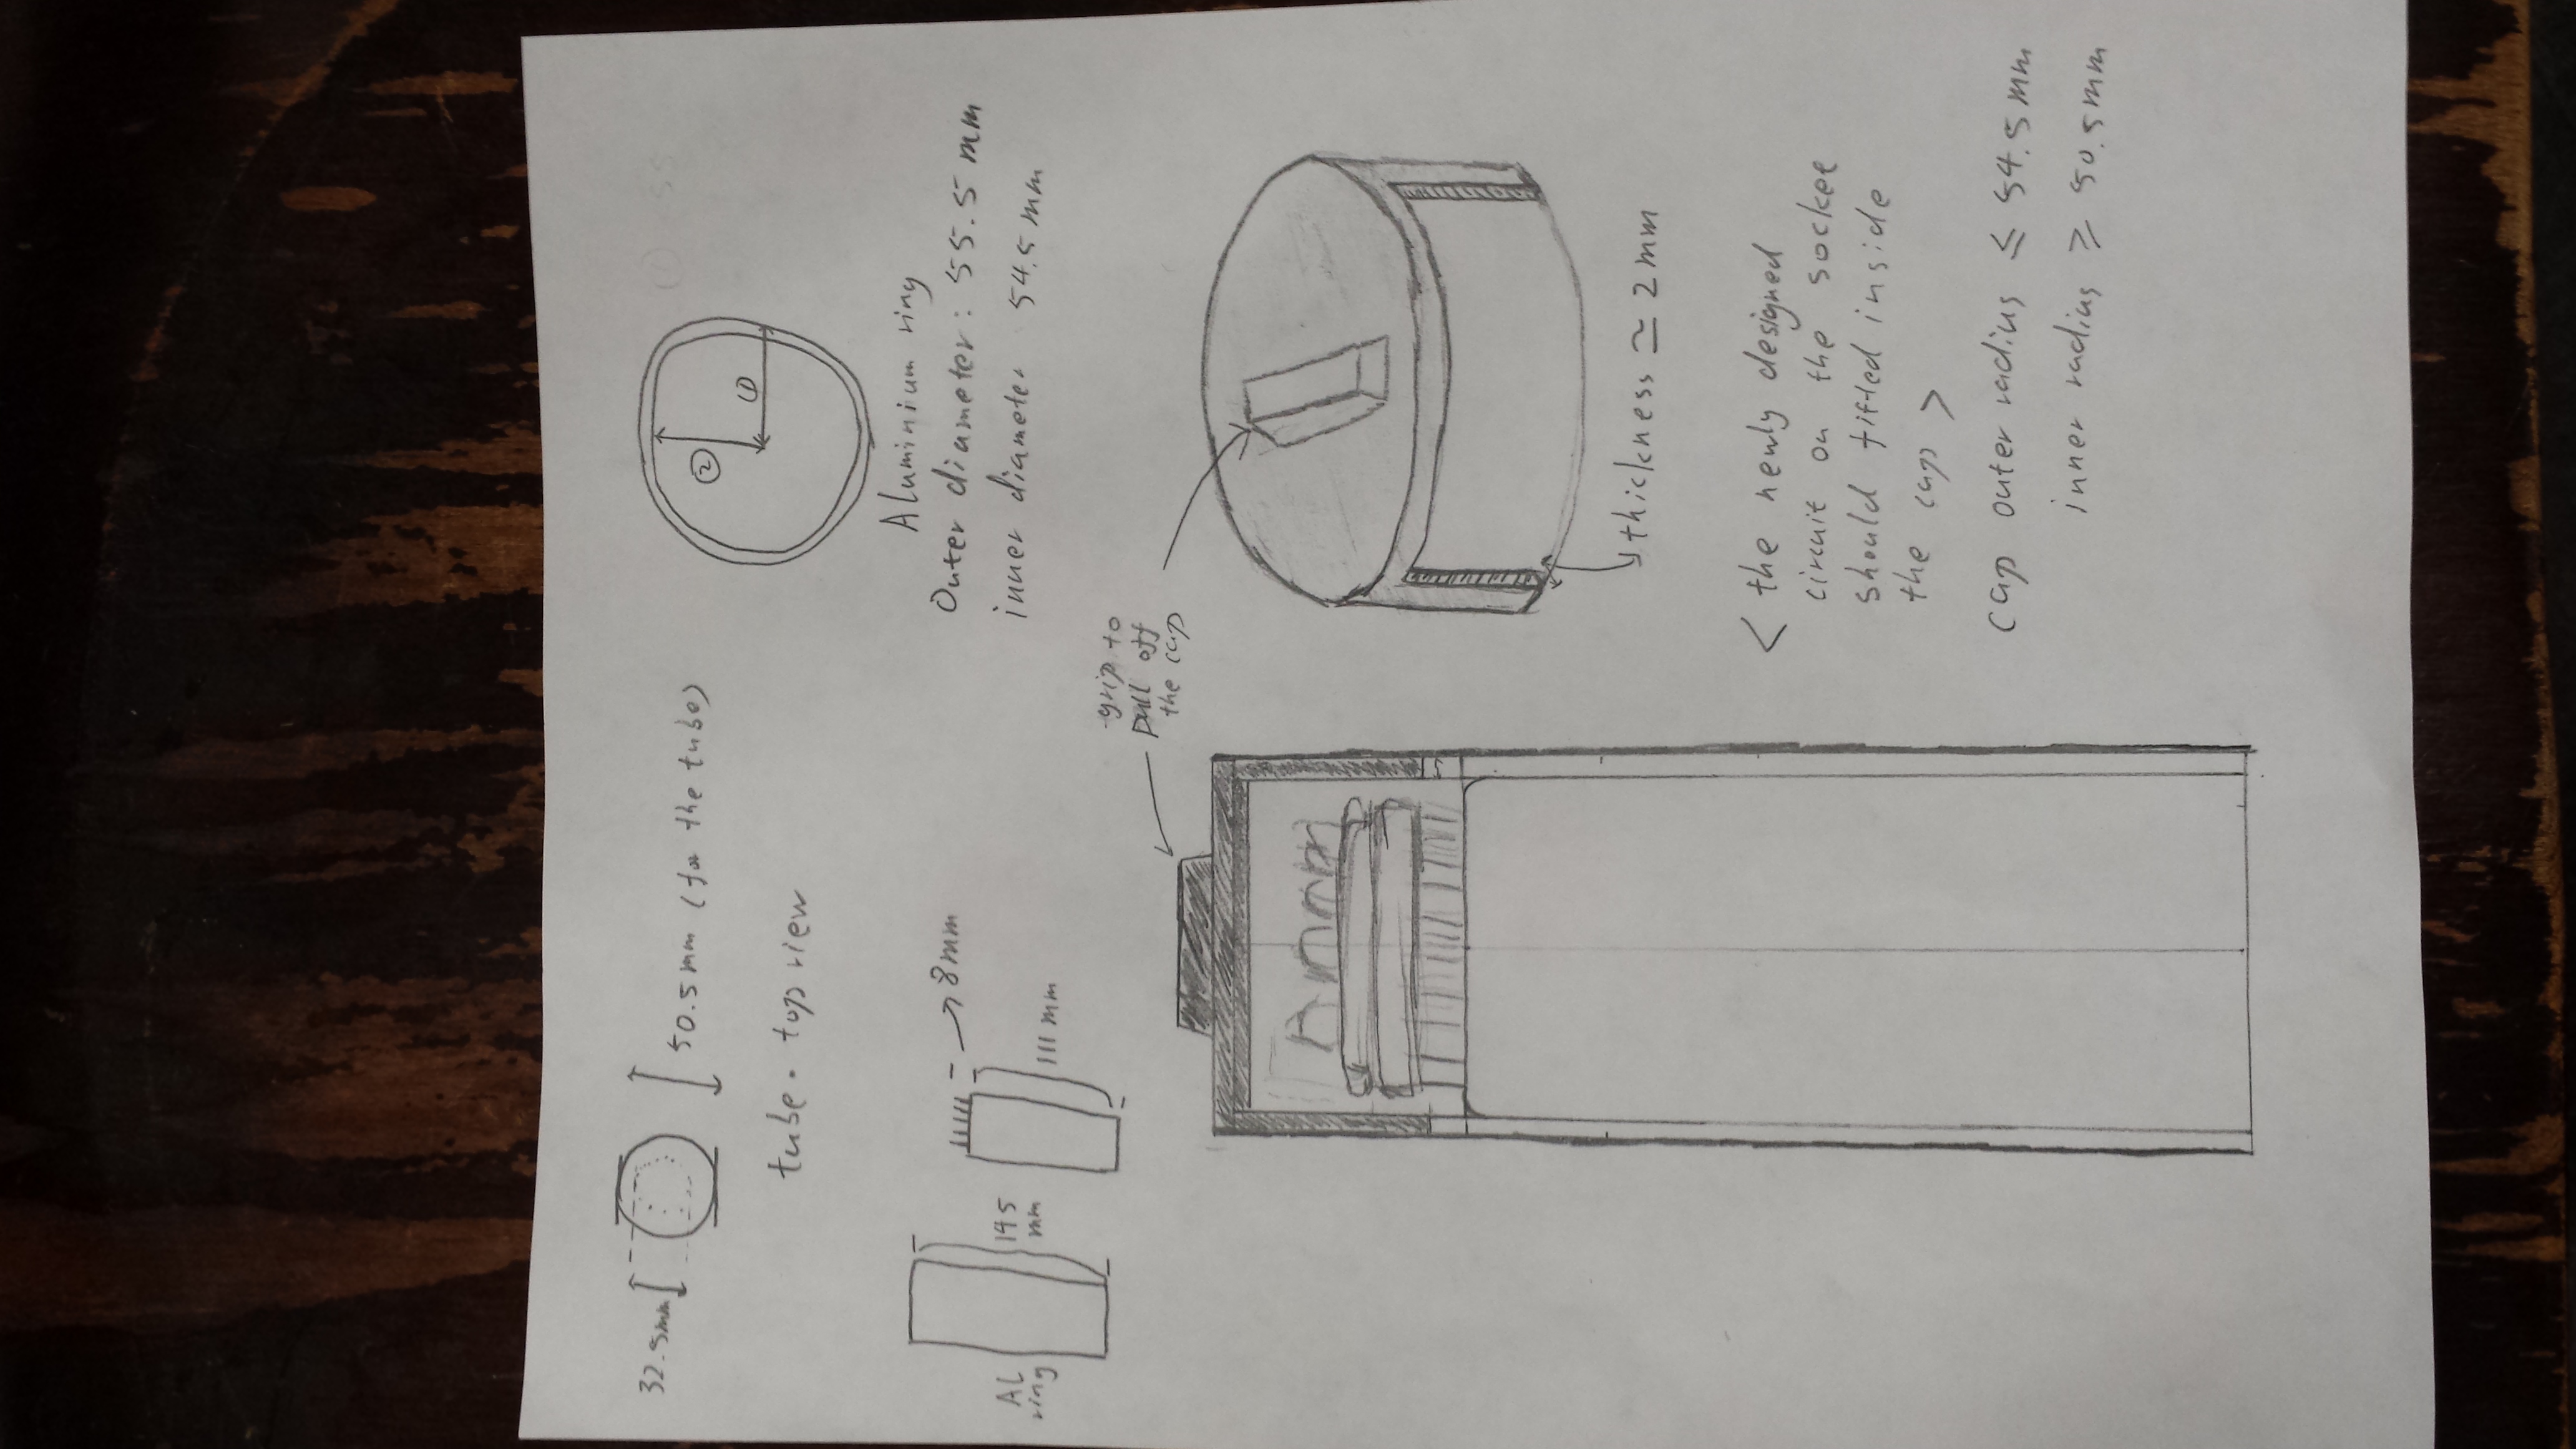 32.5mm
50.5mm (for the tube)
tube. top view
②
①
Aluminium ring
Outer diameter: 55.5 mm
inner diameter 54.5 mm
AL
ring
145
mm
8mm
111 mm
grip to
pull off
the cap
thickness ≃ 2mm
< the newly designed
circuit on the socket
should fitted inside
the cap >
cap outer radius ≤ 54.5mm
inner radius ≥ 50.5mm